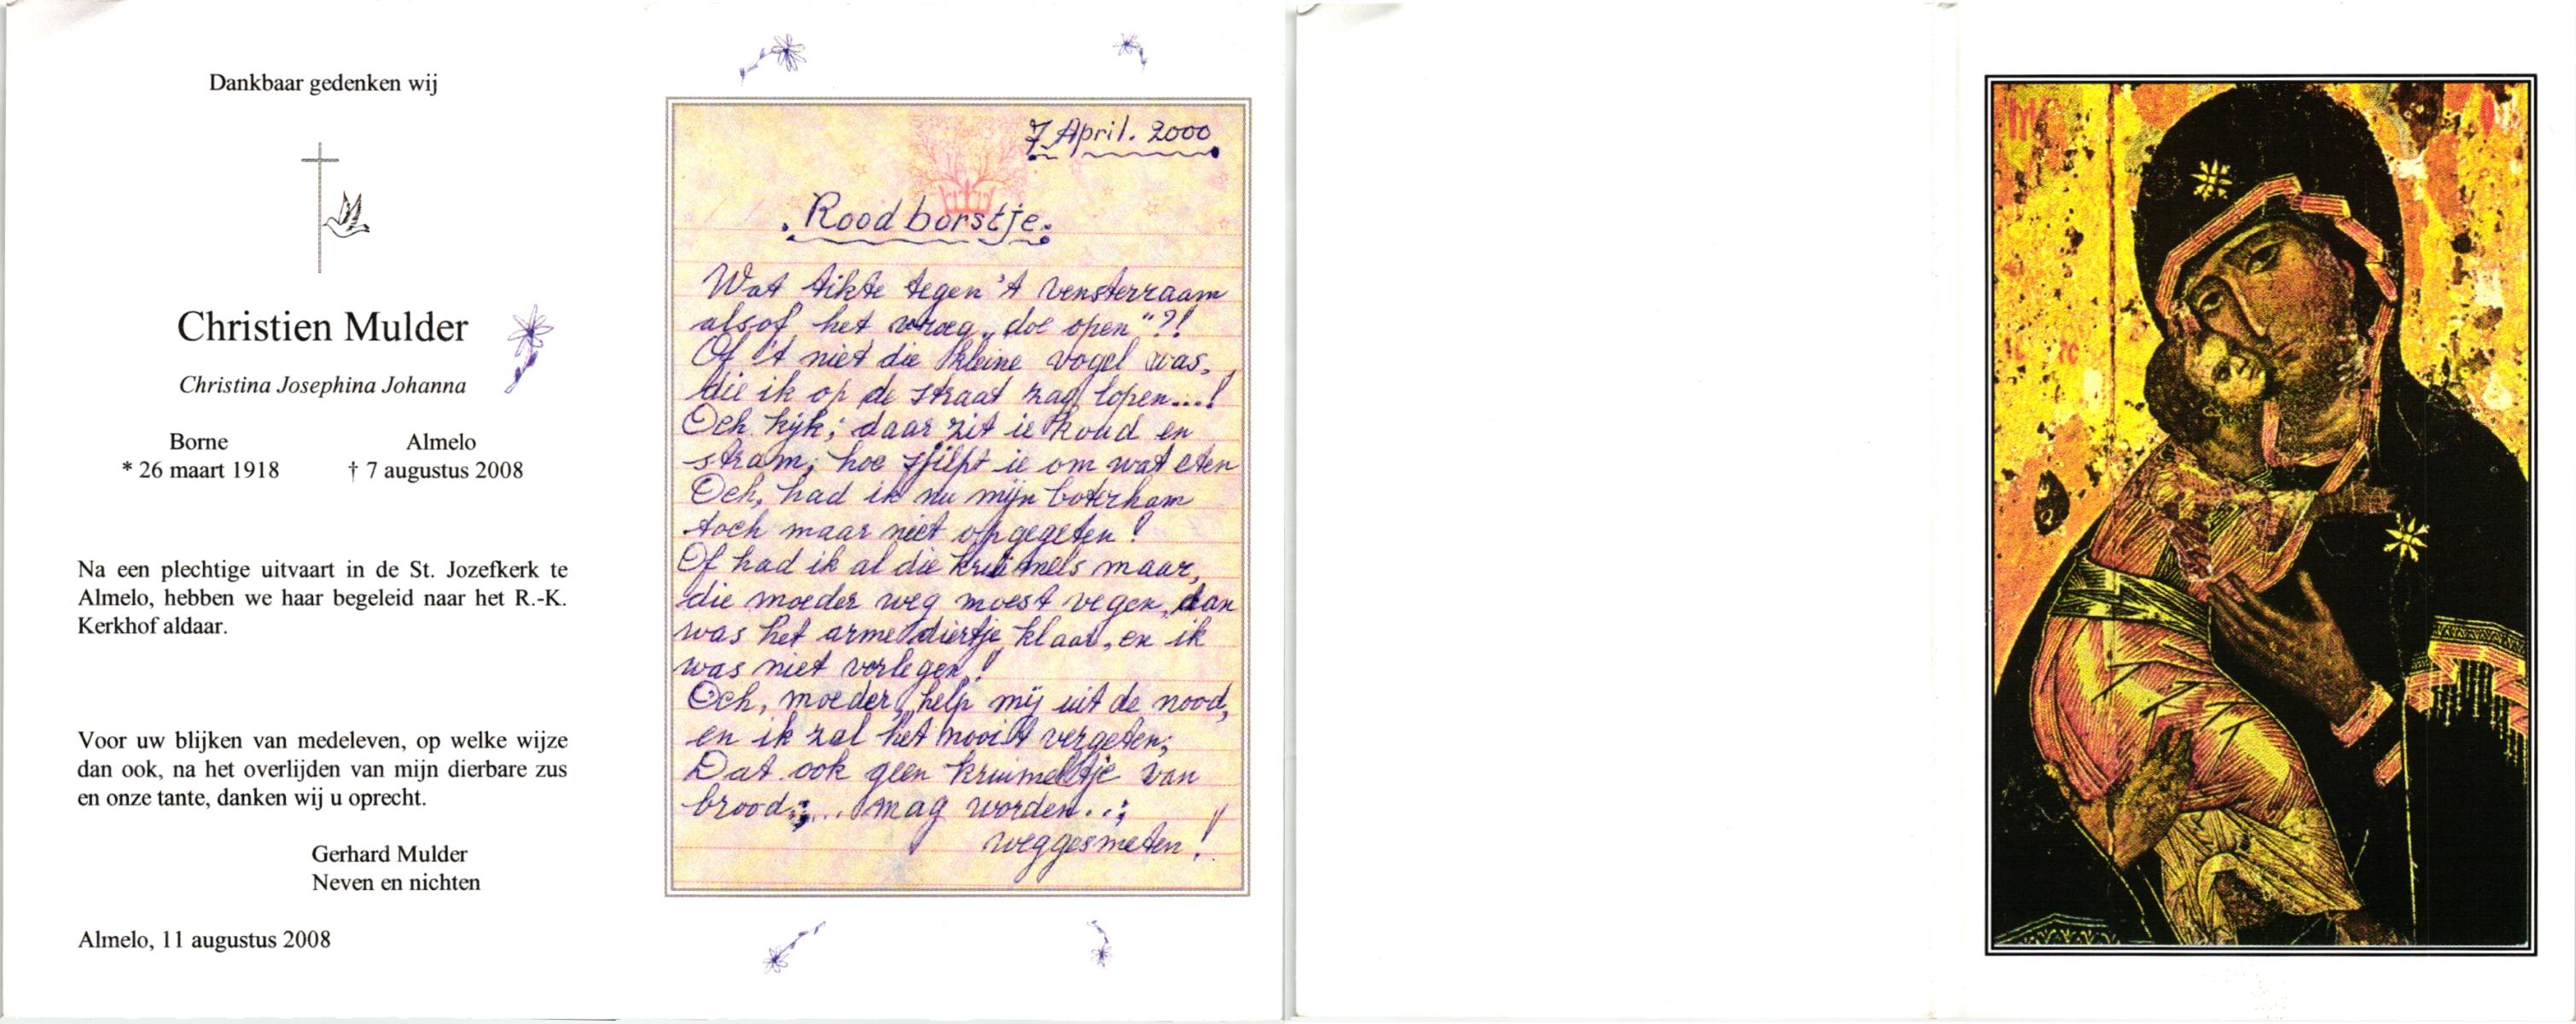 Dankbaar gedenken wij
Christien Mulder
Christina Josephina Johanna
Borne
* 26 maart 1918
Almelo
† 7 augustus 2008
Na een plechtige uitvaart in de St. Jozefkerk te
Almelo, hebben we haar begeleid naar het R.-K.
Kerkhof aldaar.
Voor uw blijken van medeleven, op welke wijze
dan ook, na het overlijden van mijn dierbare zus
en onze tante, danken wij u oprecht.
Gerhard Mulder
Neven en nichten
Almelo, 11 augustus 2008
7 April. 2000
. Roodborstje.
Wat tikte tegen 't vensterraam
alsof het vroeg „doe open"?!
Of 't niet die kleine vogel was,
die ik op de straat zag lopen...!
Och kijk; daar zit ie koud en
stram; hoe sjilpt ie om wat eten
Och, had ik nu mijn boterham
toch maar niet opgegeten!
Of had ik al die kruimels maar,
die moeder weg moest vegen, dan
was het arme diertje klaar, en ik
was niet verlegen!
Och, moeder, help mij uit de nood,
en ik zal het nooit vergeten;
Dat ook geen kruimeltje van
brood;... mag worden..;
weggesmeten!